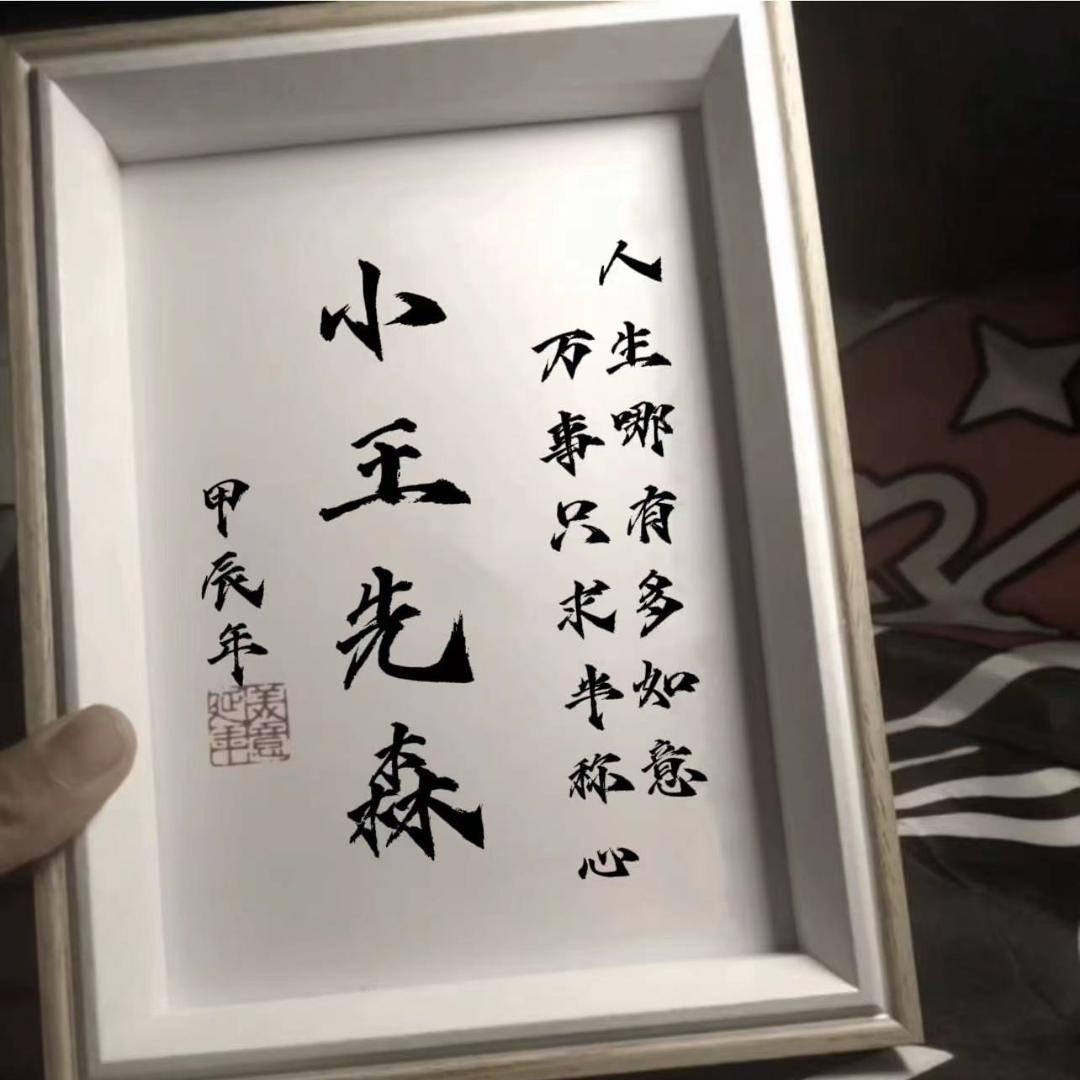 人生哪有多如意
万事只求半称心
小王先森
甲辰年
美意延年